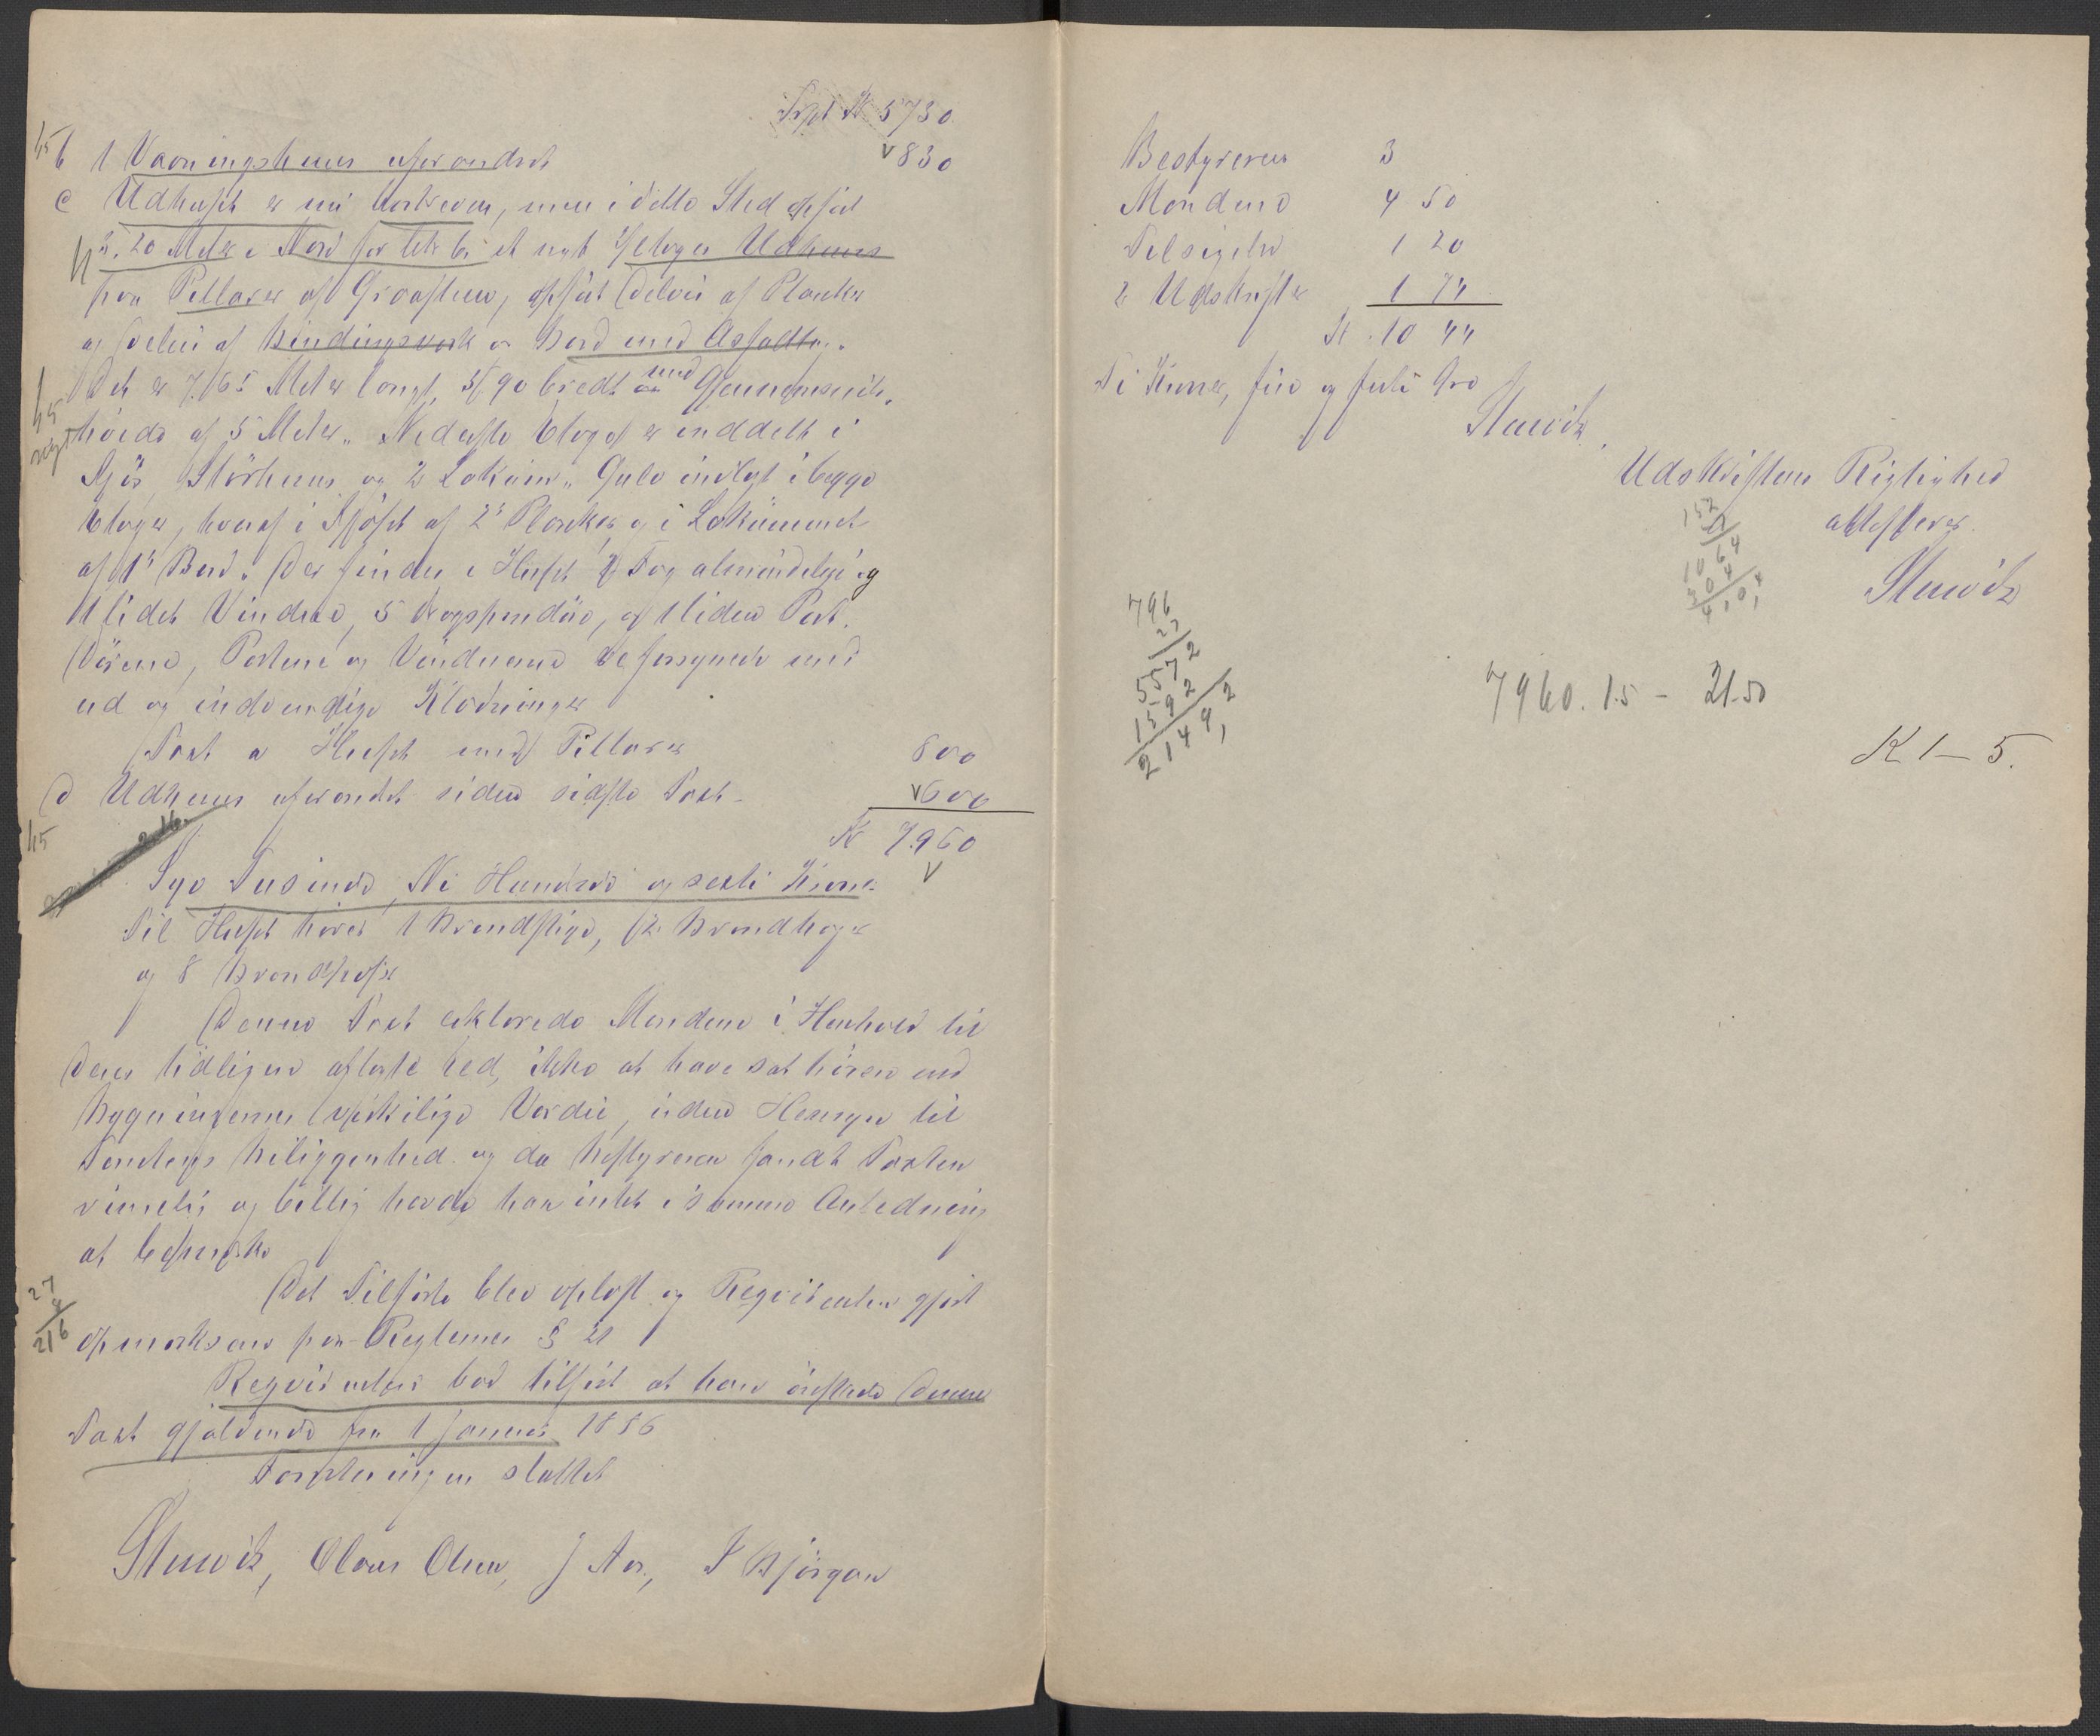 Trpt Kr 5730
b 1 Vaaningshuus uforandret 830
c Udhuset er nu bortrevet, men i dette Sted opført
20 Meter i Nord for Litr b. et nyt 2 Etages Udhuus
paa Pillarer af Graasteen, opført delvis af Planker
og delvis af Bindingsverk og Bord med Asfalttag.
Det er 7,65 Meter langt, 5,90 bredt med Gjennemsnits
høide af 5 Meter. Nederste Etage er inddelt i
Fjøs, Størhuus og 2 Lokum. Gulv indlagt i begge
Etager, hvoraf i Fjøset af 2" Planker og i Lokummet
af 1" Bord. Der findes i Huset 2 Fag almindelige og
1 lidet Vindue, 5 Døre, og 1 liden Port.
Dørene, Portene og Vinduerne er forsynede med
ud og indvendige Klædninger
Taxt a Huset med Pillarer 800
d Udhuus uforandret siden sidste Taxt 600
Kr 7960
Syv Tusinde, Ni Hundrede og sexti Kroner
Til Huset hører 1 Brandstige, 2 Brandhager
og 8 Brandspand
Denne Taxt erklærede Mændene i Henhold til
deres tidligere aflagte Eed, ikke at have sat høiere end
Bygningernes virkelige Værdie, uden Hensyn til
Tomtens Beliggenhed og da Bestyreren fandt Taxten
rimelig og billig havde han intet i samme Anledning
at bemærke
Det Tilførte blev oplæst og Reqvirenten gjort
opmærksom paa Reglemets § 21
Reqvirenten bad tilført at han ønskede denne
Taxt gjældende fra 1 Januar 1886
Forretningen sluttet
Stuwitz, Claus Olsen, J Aas, J Bjørgan
27
8
216
Bestyreren 3
Mændene 4 50
Tilsigelse 1 20
2 Udskrifter 1 74
Kr. 10 44
Ti Kroner, fire og firti Øre
Stuwitz
Udskriftens Rigtighed
attesterer
Stuwitz
152
27
1064
304
796
27
5572
1592
21492
7960. 1.5 - 21.50
K 1-5.